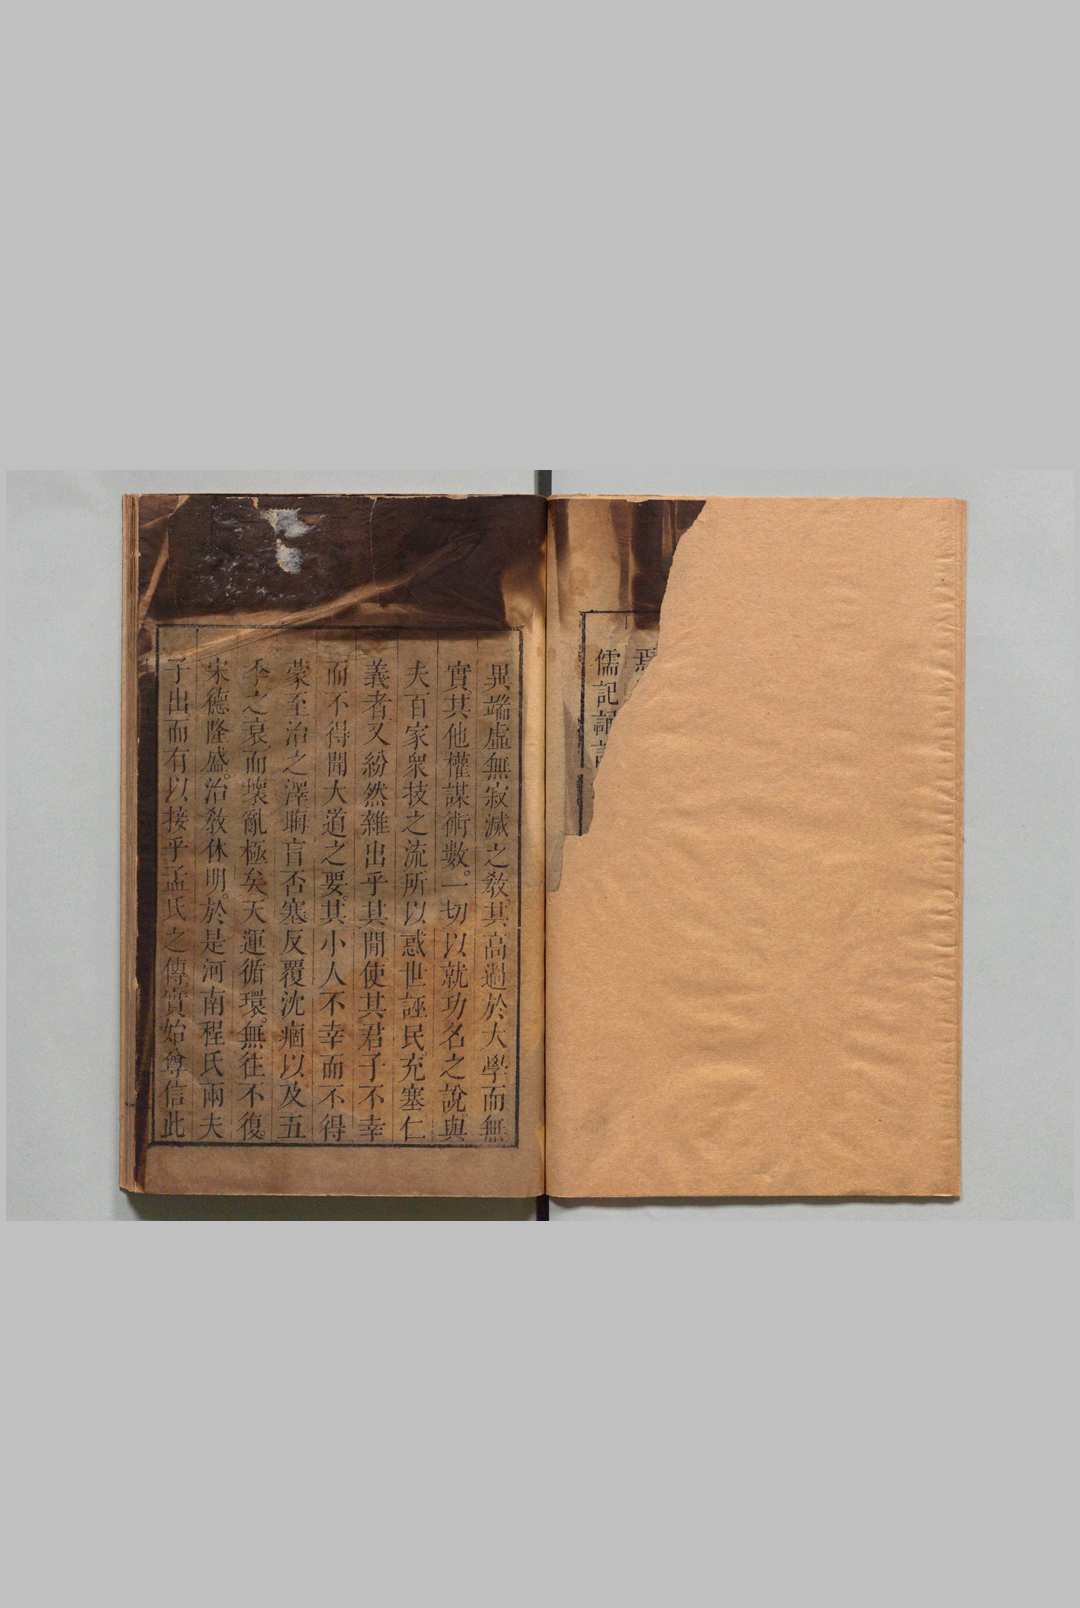 焉
儒記誦
異端虛無寂滅之敎其高過於大學而無
實其他權謀術數。一切以就功名之說與
夫百家衆技之流所以惑世誣民充塞仁
義者又紛然雜出乎其閒使其君子不幸
而不得聞大道之要。其小人不幸而不得
蒙至治之澤晦盲否塞反覆沈痼以及五
季之衰而壞亂極矣天運循環。無往不復。
宋德隆盛。治敎休明。於是河南程氏兩夫
子出而有以接乎孟氏之傳實始尊信此